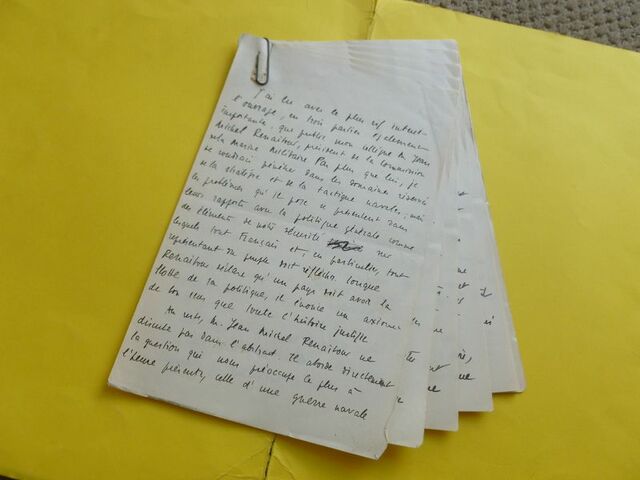 J'ai lu avec le plus vif intérêt
l'ouvrage, en trois parties également
importantes, que publie mon collègue M. Jean
Michel Renaitour, président de la Commission
de la Marine Militaire. Pas plus que lui, je
ne voudrais pénétrer dans les domaines réservés
de la stratégie et de la tactique navales, mais
les problèmes qu'il pose se présentent dans
leurs rapports avec la politique générale comme
des éléments de notre sécurité sur
lesquels tout Français et, en particulier, tout
représentant du peuple doit réfléchir. Lorsque
Renaitour déclare qu'un pays doit avoir la
flotte de sa politique, il énonce un axiome
de bon sens que toute l'histoire justifie
Au reste, M. Jean Michel Renaitour ne
discute pas dans l'abstrait. Il aborde directement
la question qui nous préoccupe le plus à
l'heure présente, celle d'une guerre navale